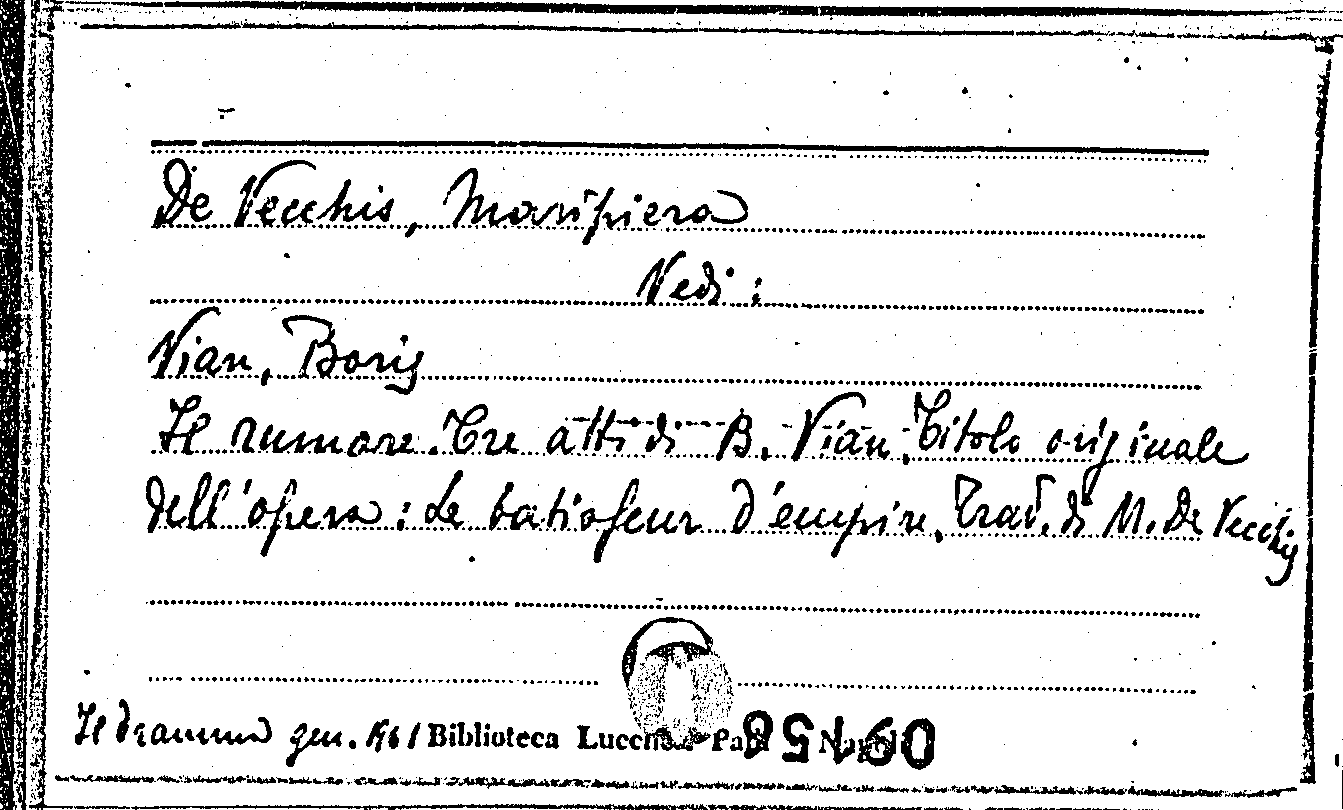 De Vecchis, Maripiera
Vedi :
Vian, Boris
Il rumore. Tre atti di B. Vian. Titolo originale
dell'opera : Le batisseur d'empire. Trad. di M. De Vecchis
Il dramma gen. 1961 Biblioteca